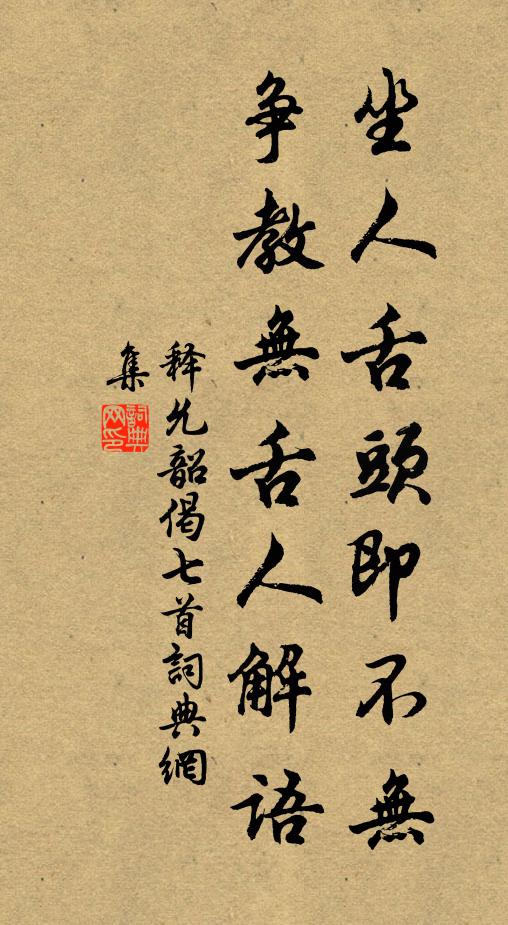 坐人舌頭即不無
争教無舌人解語
释允韶偈七首詞典網
集
詞典网印